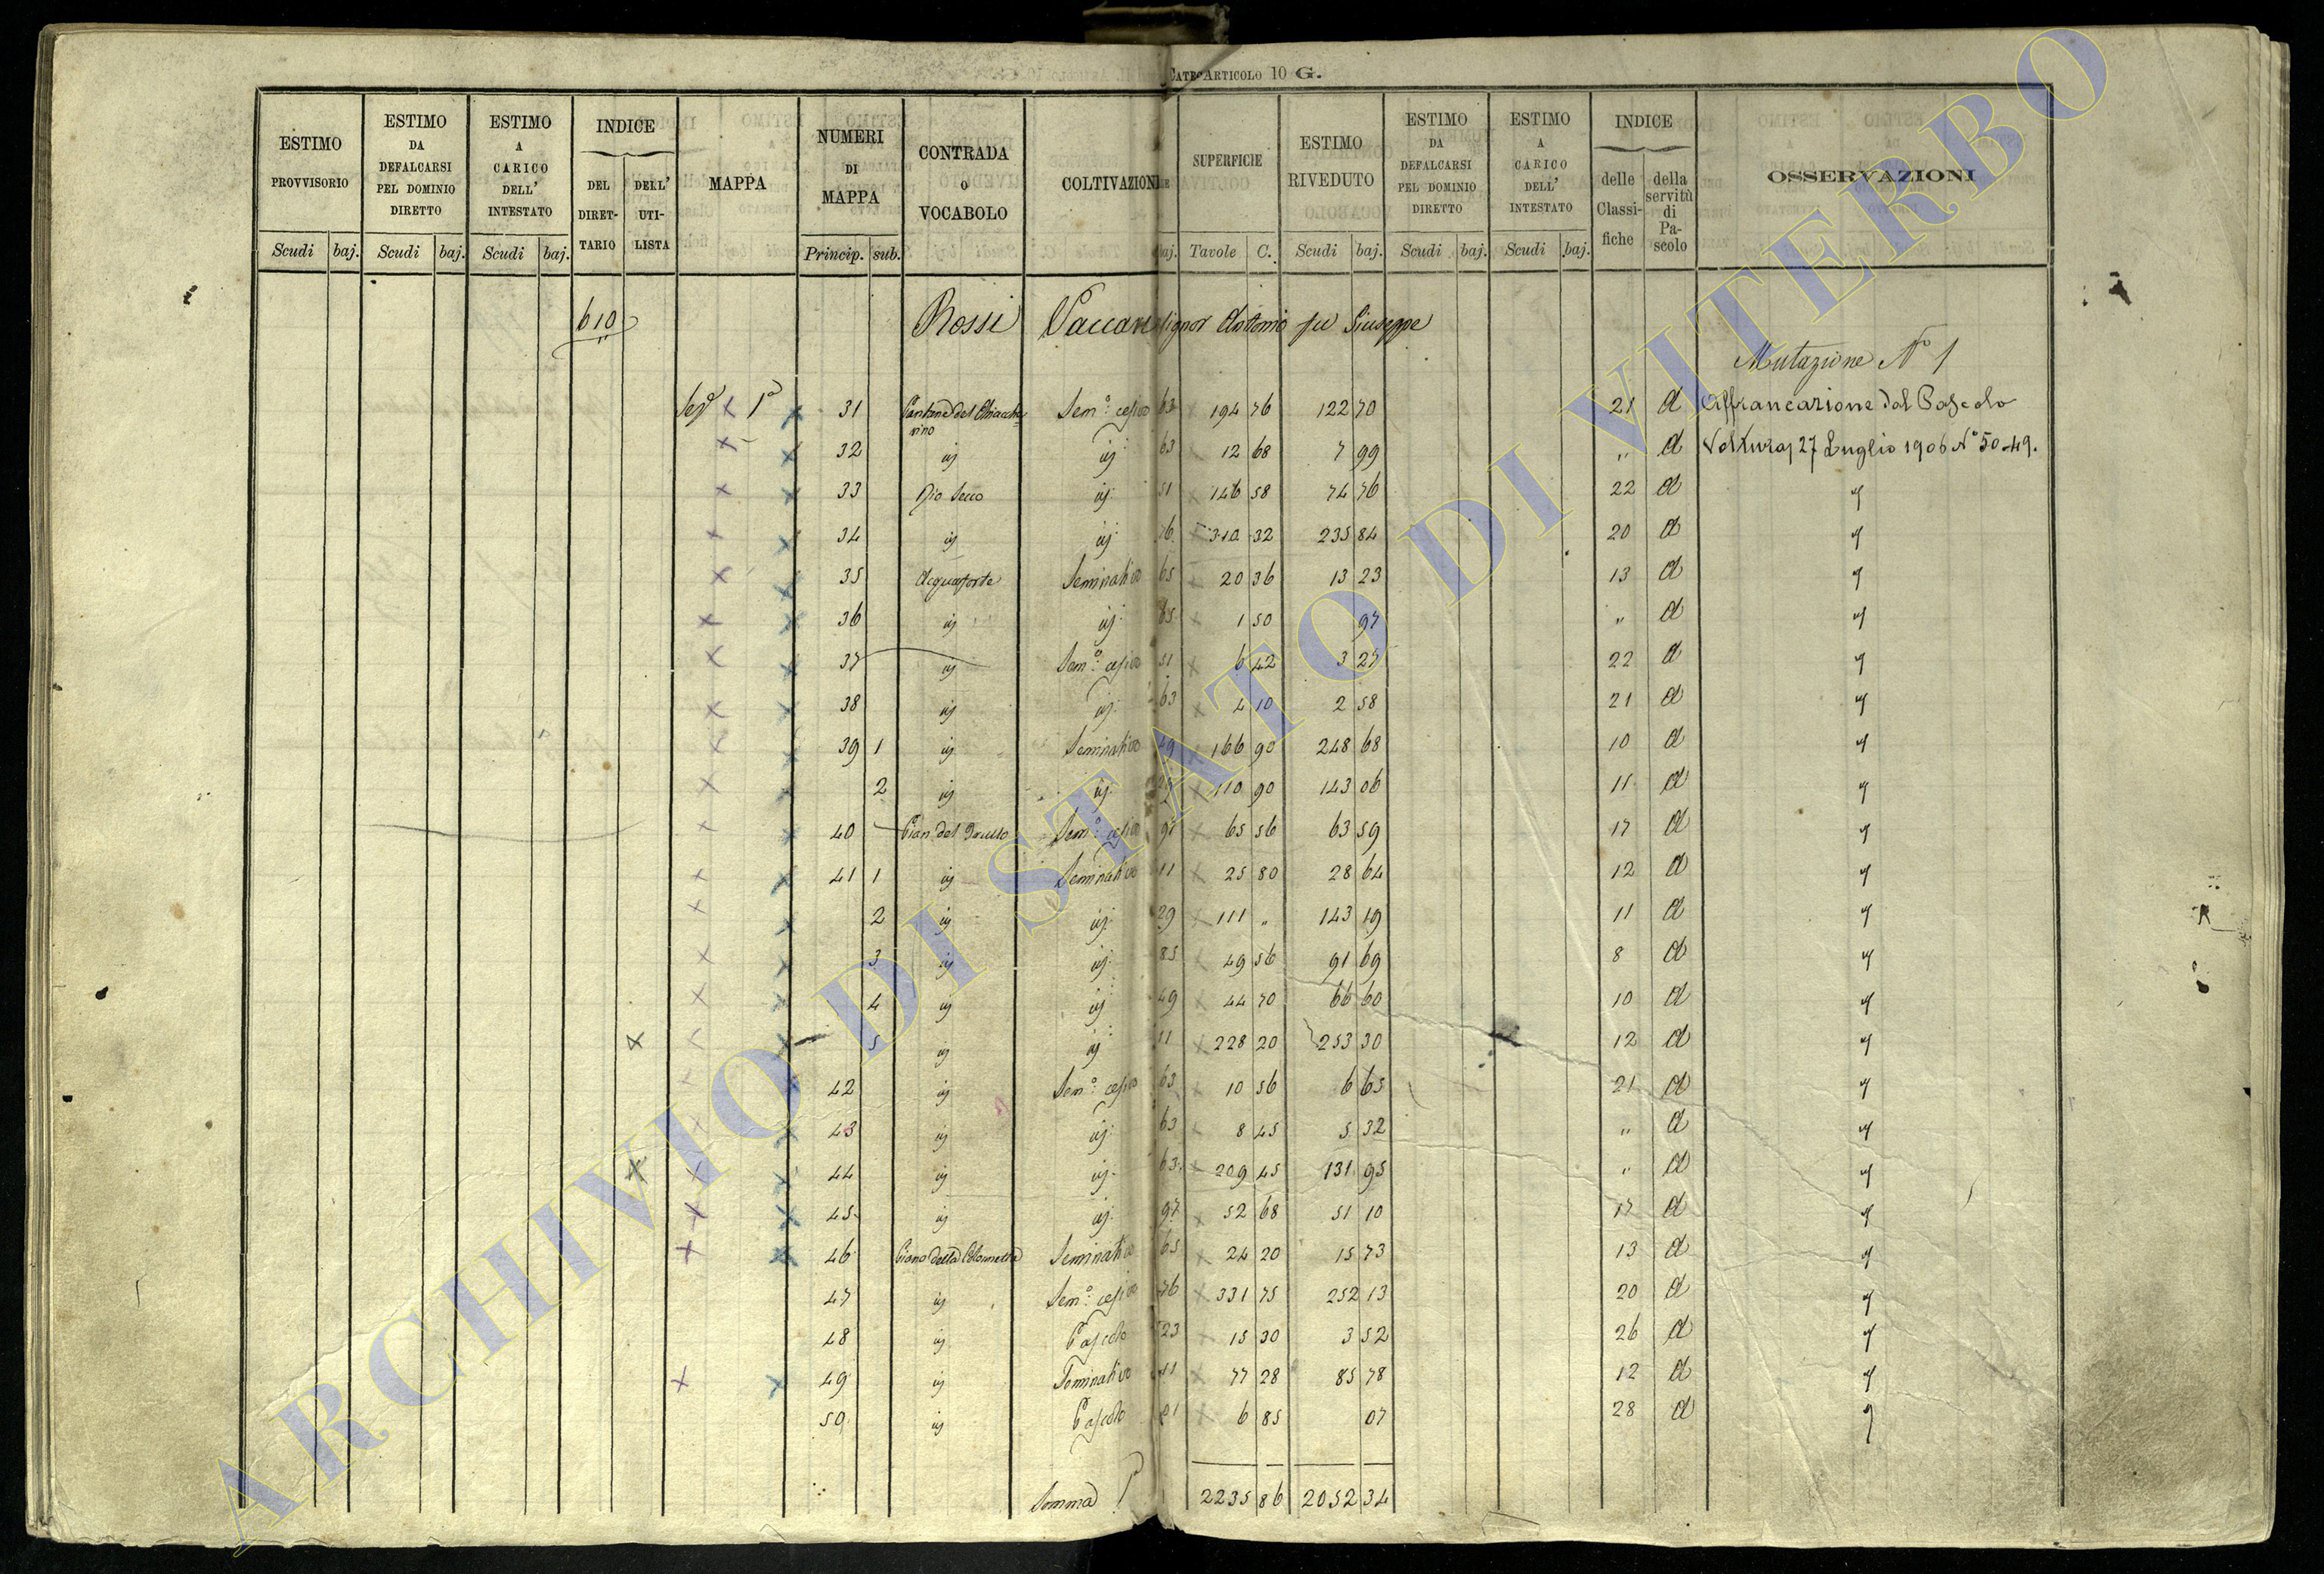 ARTICOLO 10 G.
ESTIMO PROVVISORIO | ESTIMO DA DEFALCARSI PEL DOMINIO DIRETTO | ESTIMO A CARICO DELL' INTESTATO | INDICE DEL DIRETTARIO | DELL' UTILISTA | MAPPA | NUMERI DI MAPPA | CONTRADA O VOCABOLO | COLTIVAZIONI | SUPERFICIE | ESTIMO RIVEDUTO | ESTIMO DA DEFALCARSI PEL DOMINIO DIRETTO | ESTIMO A CARICO DELL' INTESTATO | INDICE delle Classifiche | della servitù di Pascolo | OSSERVAZIONI
Scudi baj. Scudi baj. Scudi baj. Princip. sub. baj. Tavole C. Scudi baj. Scudi baj. Scudi baj.
610 Rossi Vaccari Signor Antonio fu Giuseppe
Mutazione N° 1
Sezᵉ 1ª 31 Sem°: 63 194 76 122 70 21 a Affrancazione dal Pascolo
32 ij ij 63 12 68 7 99 " a Voltura 27 Luglio 1906 N° 50-49.
33 Rio Secco ij 51 146 58 74 76 22 a "
34 ij ij 76 310 32 235 84 20 a "
35 Acquaforte Seminativo 65 20 36 13 23 13 a "
36 ij ij 65 1 50 97 " a "
37 ij Sem°: 51 6 42 3 27 22 a "
38 ij ij 63 4 10 2 58 21 a "
39 1 ij Seminativo 49 166 90 248 68 10 a "
2 ij ij 29 110 90 143 06 11 a "
40 Sem°: 97 65 56 63 59 17 a "
41 1 ij Seminativo 11 25 80 28 64 12 a "
2 ij ij 29 111 " 143 19 11 a "
3 ij ij 85 49 56 91 69 8 a "
4 ij ij 49 44 70 66 60 10 a "
5 ij ij 11 228 20 253 30 12 a "
42 ij Sem°: 63 10 56 6 65 21 a "
43 ij ij 63 8 45 5 32 " a "
44 ij ij 63 209 45 131 95 " a "
45 ij ij 97 52 68 51 10 17 a "
46 Piano della Seminativo 65 24 20 15 73 13 a "
47 ij Sem°: 76 331 75 252 13 20 a "
48 ij Pascolo 23 15 30 3 52 26 a "
49 ij Seminativo 11 77 28 85 78 12 a "
50 ij Pascolo 01 6 85 07 28 a "
Somma 2235 86 2052 34
ARCHIVIO DI STATO DI VITERBO